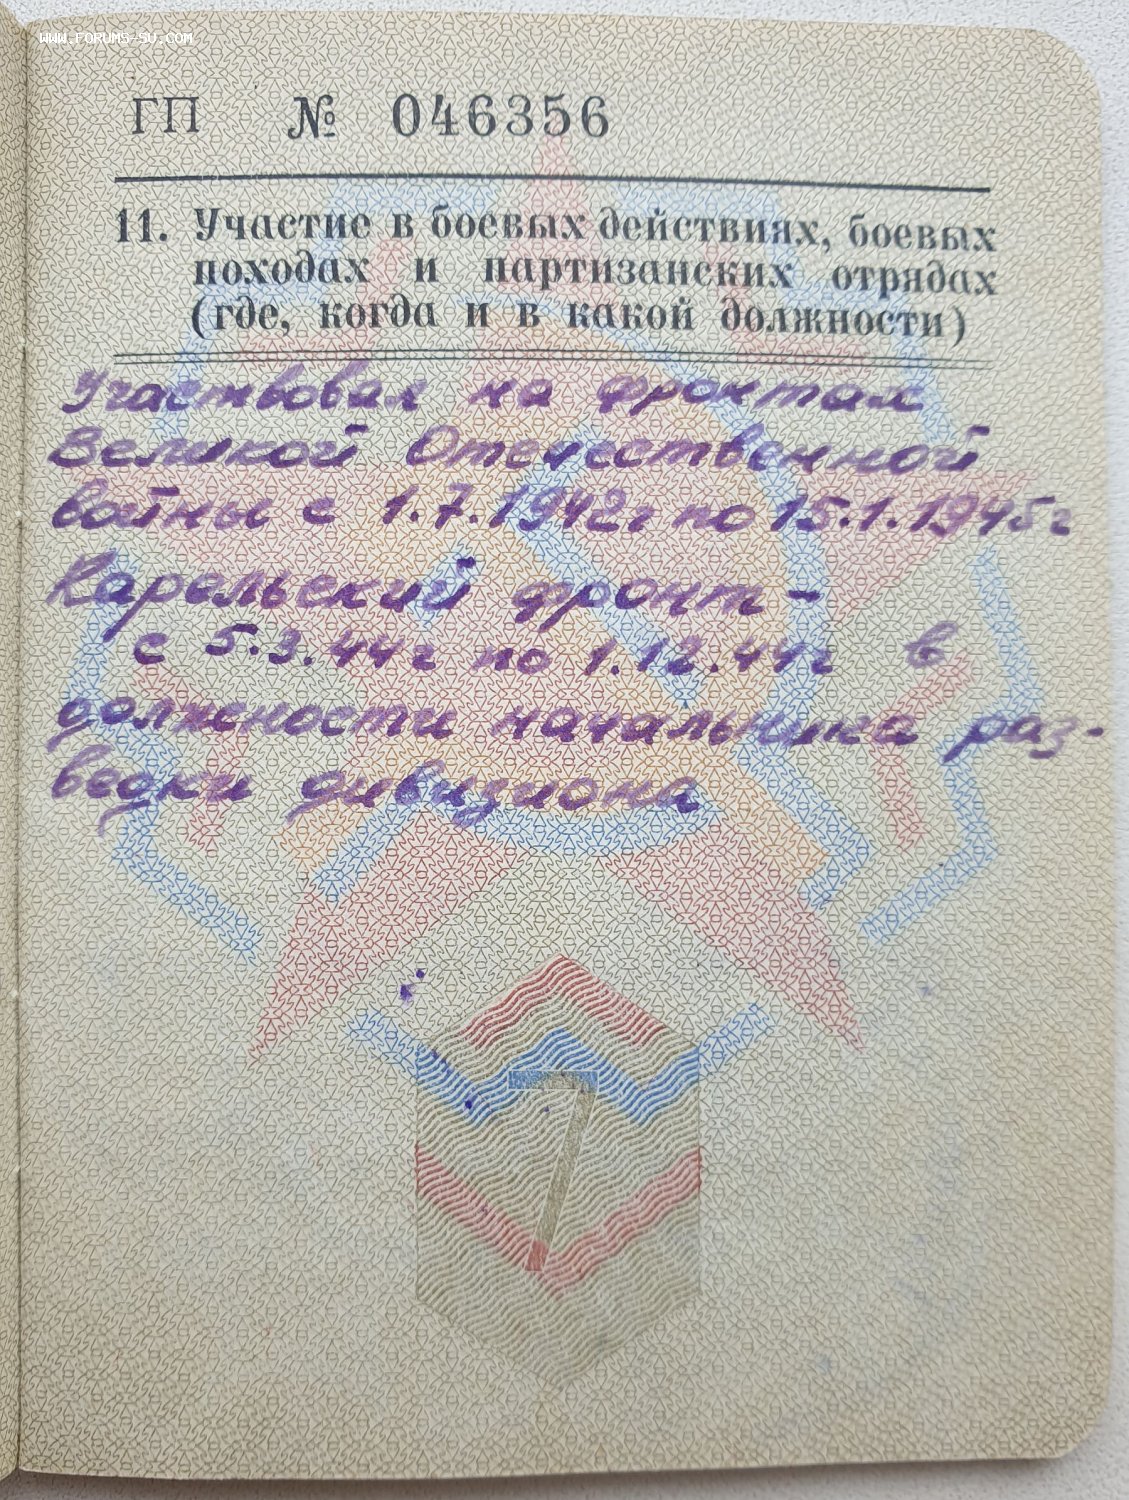 WWW.FORUMS-SU.COM
ГП № 046356
11. Участие в боевых действиях, боевых
походах и партизанских отрядах
(где, когда и в какой должности)
Участвовал на фронтах
Великой Отечественной
войны с 1.7.1942г по 15.1.1945г
Карельский фронт -
с 5.3.44г по 1.12.44г в
должности начальника раз-
ведки дивизиона
7